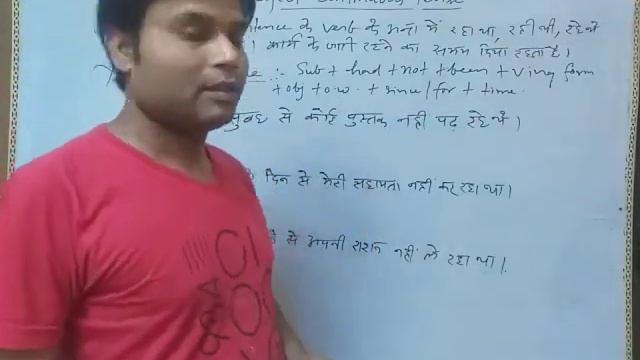 Continuous Tense
के verb के अन्त में रहा था, रही थी, रहे थे
कार्य के जारी रहने का समय दिया रहता है।
:- Sub + had + not + been + Ving form
+ obj + o.w. + since/for + time.
सुबह से कोई पुस्तक नहीं पढ़ रहे थे।
दिन से मेरी सहायता नहीं कर रहा था।
से अपनी राशन नहीं ले रहा था।